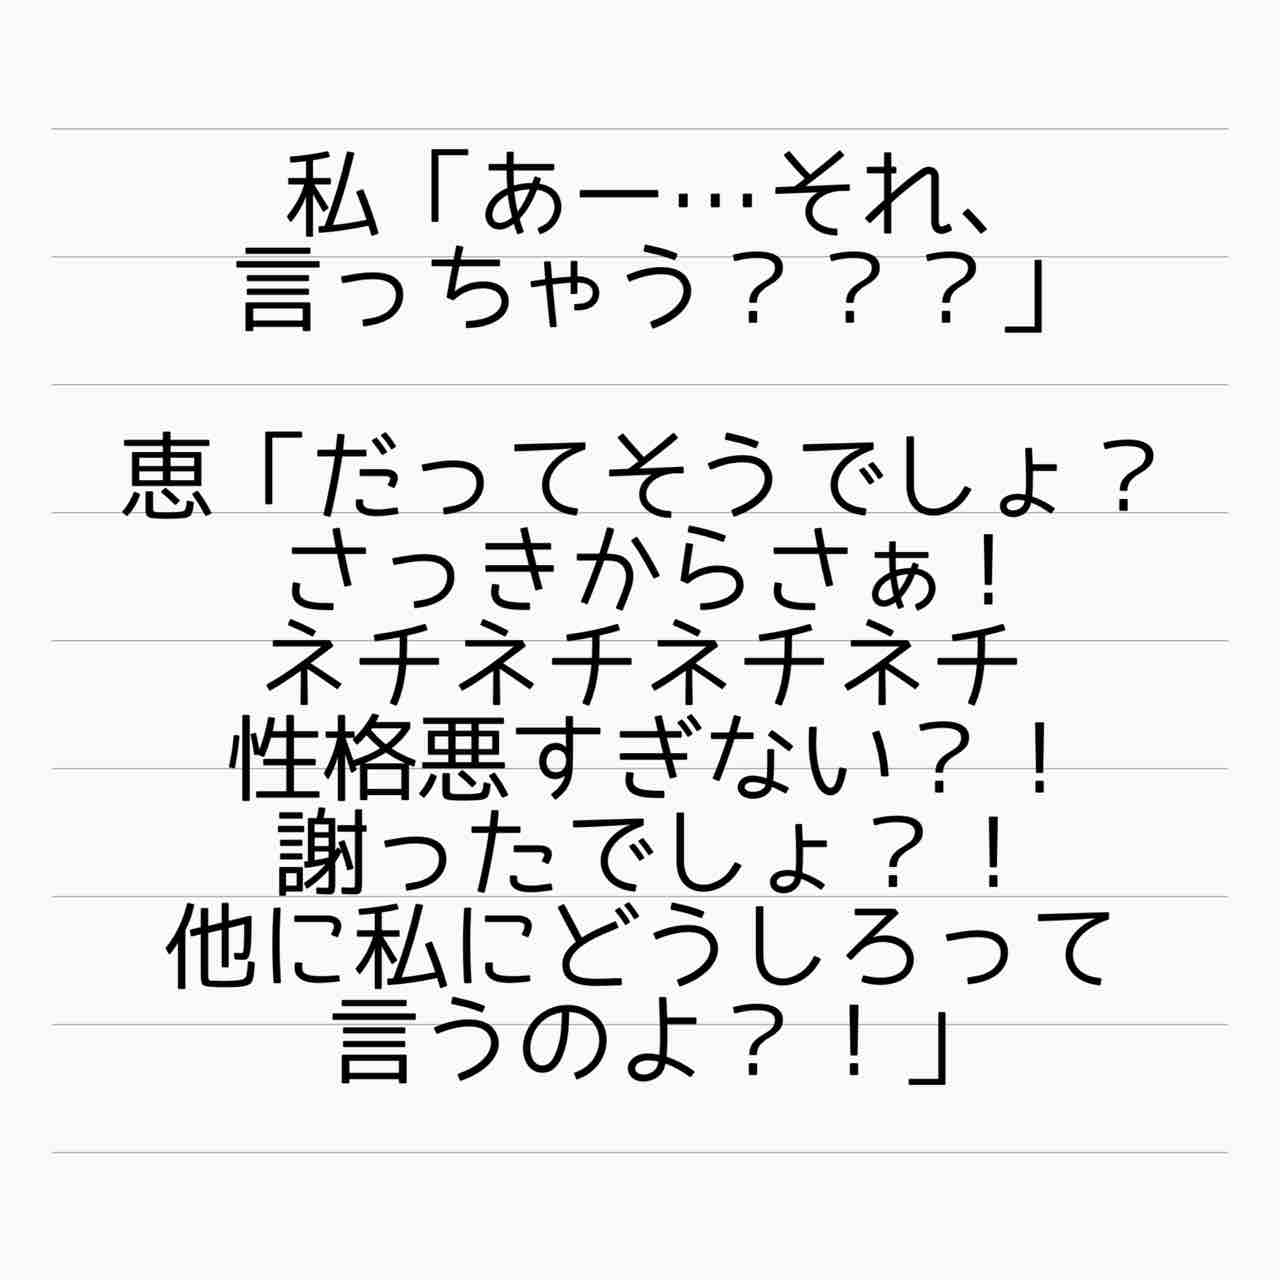 私「あー…それ、
言っちゃう？？？」
恵「だってそうでしょ？
さっきからさぁ！
ネチネチネチネチ
性格悪すぎない？！
謝ったでしょ？！
他に私にどうしろって
言うのよ？！」